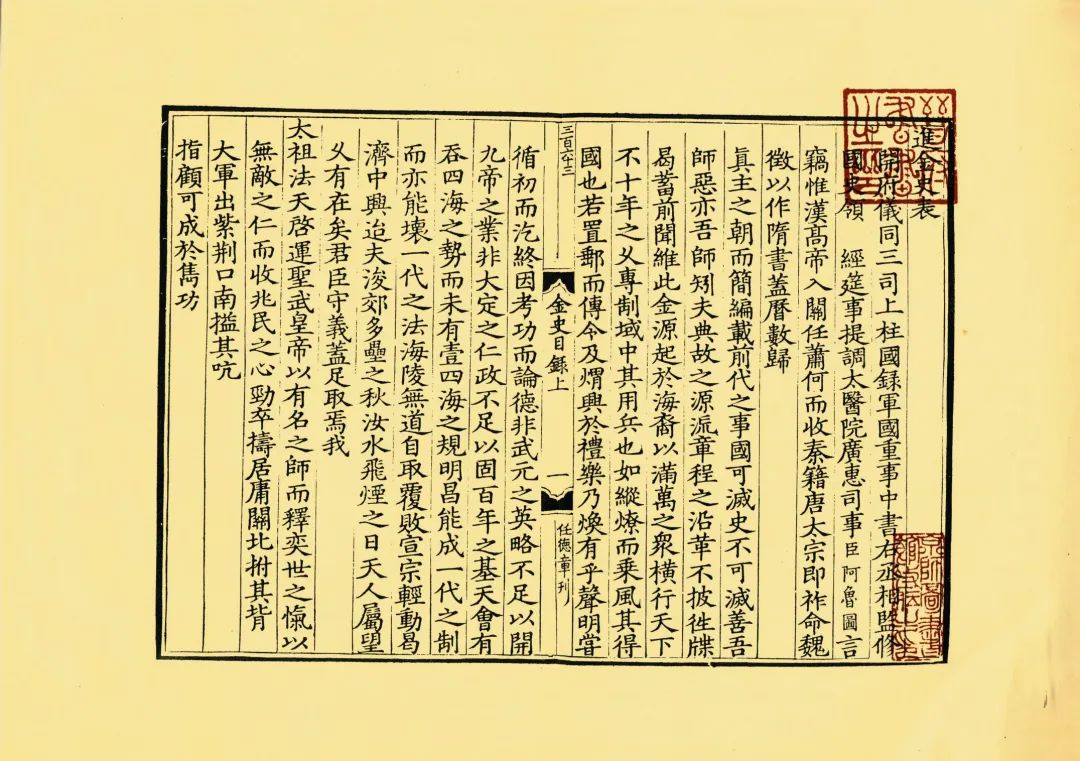 進金史表
開府儀同三司上柱國録軍國重事中書右丞相監修
國史領　經筵事提調太醫院廣惠司事臣阿魯圖言
竊惟漢高帝入關任蕭何而收秦籍唐太宗即祚命魏
徵以作隋書蓋曆數歸
眞主之朝而簡編載前代之事國可滅史不可滅善吾
師惡亦吾師矧夫典故之源派章程之沿革不披徃牒
曷蓄前聞維此金源起於海裔以滿萬之衆橫行天下
不十年之乆專制域中其用兵也如縱燎而乗風其得
國也若置郵而傳令及煟興於禮樂乃煥有乎聲明嘗
三百六十三
金史目録上
一
任德章刋
循初而汔終因考功而論德非武元之英略不足以開
九帝之業非大定之仁政不足以固百年之基天會有
吞四海之勢而未有壹四海之規明昌能成一代之制
而亦能壞一代之法海陵無道自取覆敗宣宗輕動曷
濟中興迨夫浚郊多壘之秋汝水飛煙之日天人屬望
乆有在矣君臣守義蓋足取焉我
太祖法天啓運聖武皇帝以有名之師而釋奕世之愾以
無敵之仁而收兆民之心勁卒擣居庸關北拊其背
大軍出紫荆口南搤其吭
指顧可成於雋功